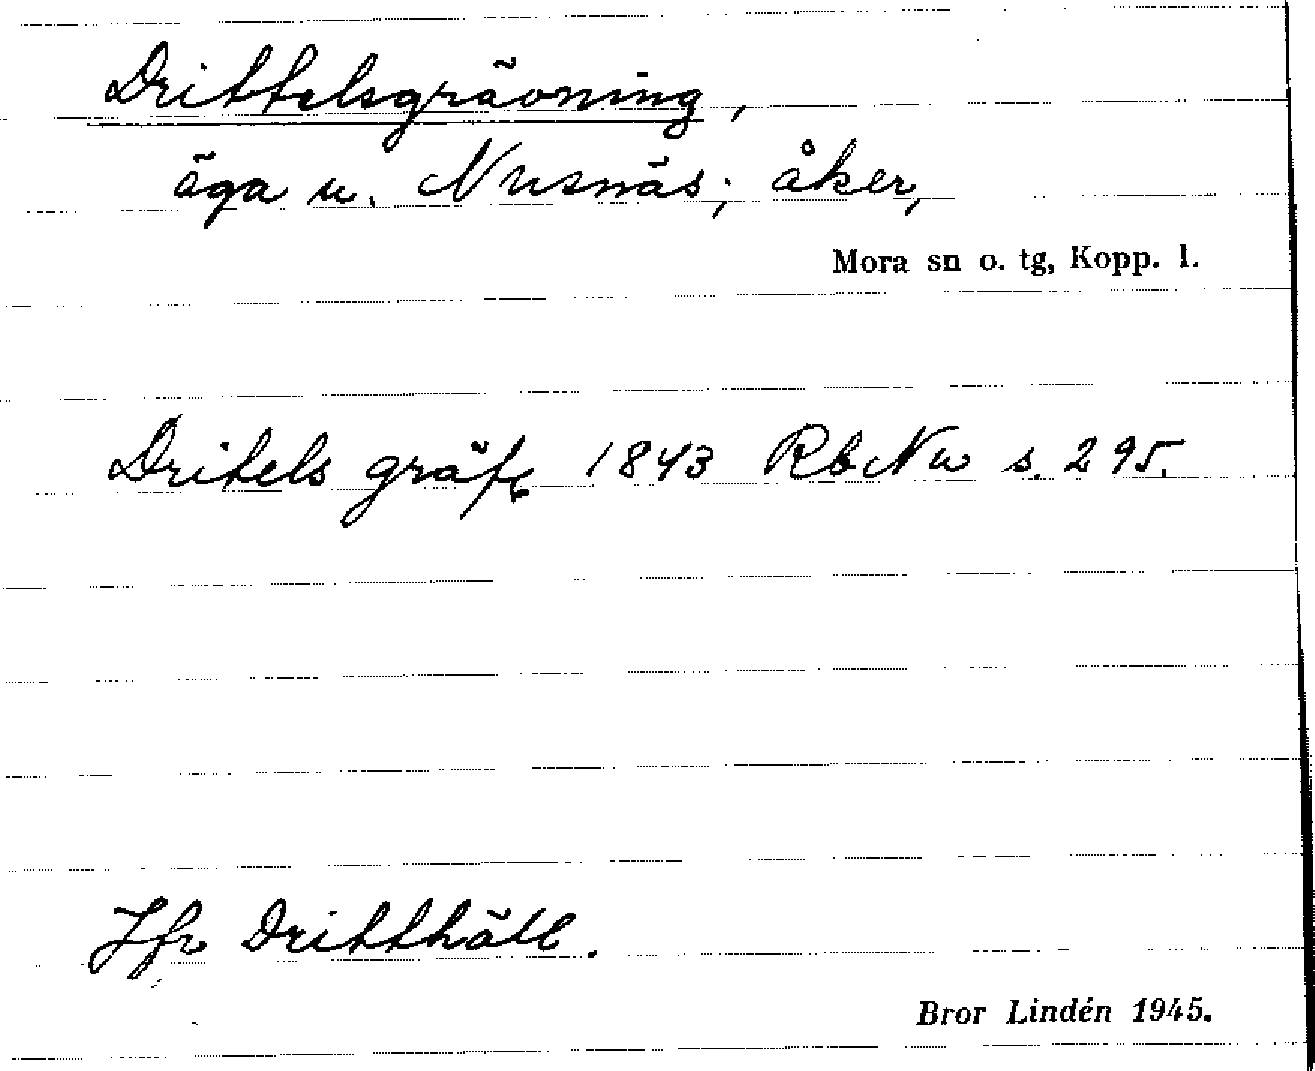 Drittelsgrävning,
äga u. Nusnäs; åker,
Mora sn o. tg, Kopp. l.
Dritels gräfe 1843 RbNu s. 295.
Jfr Dritthäll.
Bror Lindén 1945.